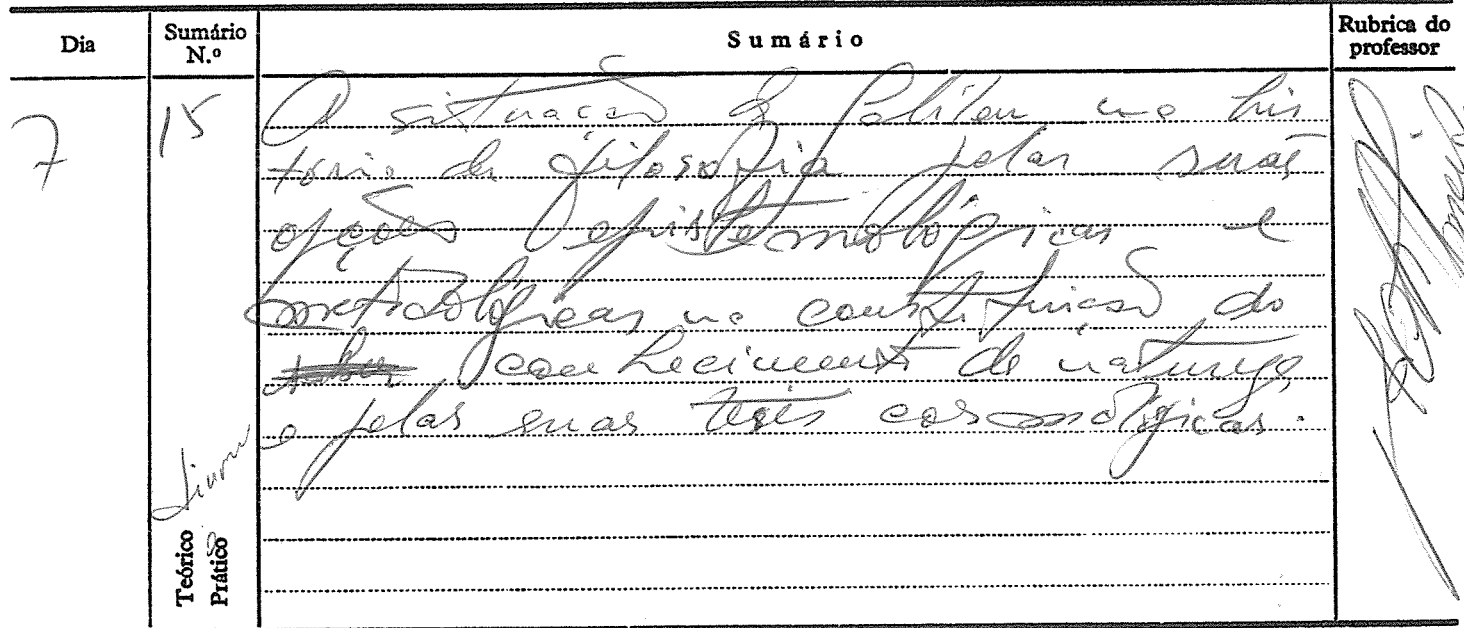 Dia
Sumário N.º
Sumário
Rubrica do professor
7
15
A situação de Galileu na his
tória da filosofia pelas suas
opções epistemológicas e
metodológicas na constituição do
conhecimento da natureza
e pelas suas teses cosmológicas.
Diurno
Teórico
Prático